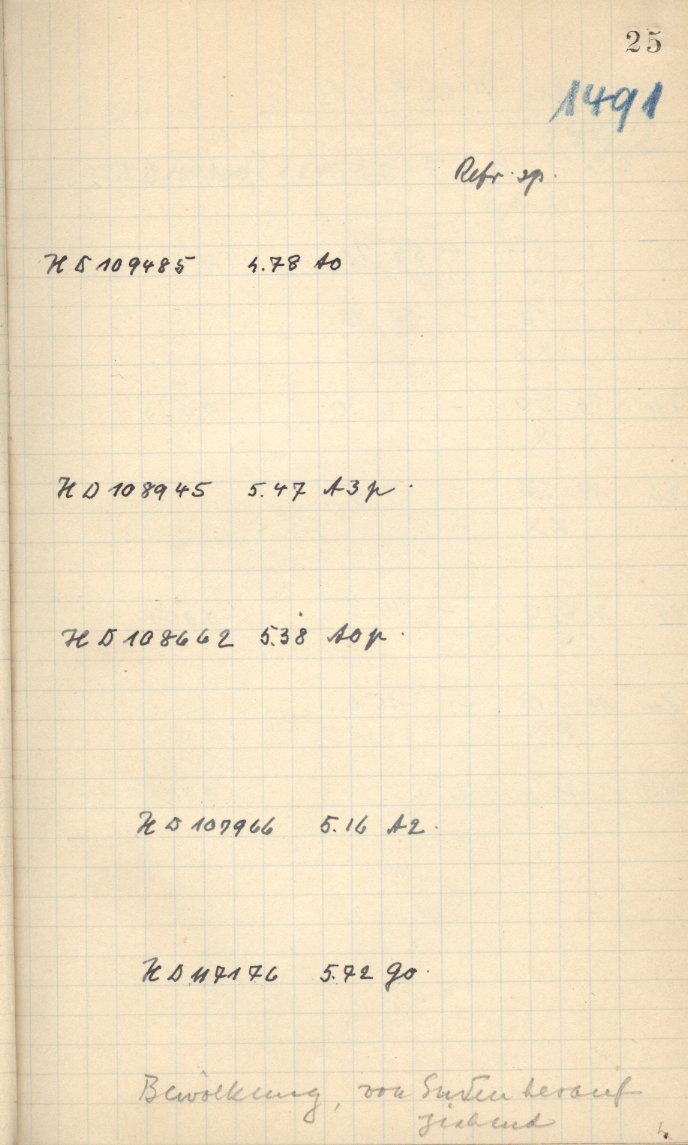 25
1491
Refr. sp.
HD 109485 4.78 A0
HD 108945 5.47 A3p.
HD 108662 5.38 A0p.
HD 107966 5.16 A2.
HD 117176 5.72 g0.
Bewölkung, von Süden herauf
ziehend